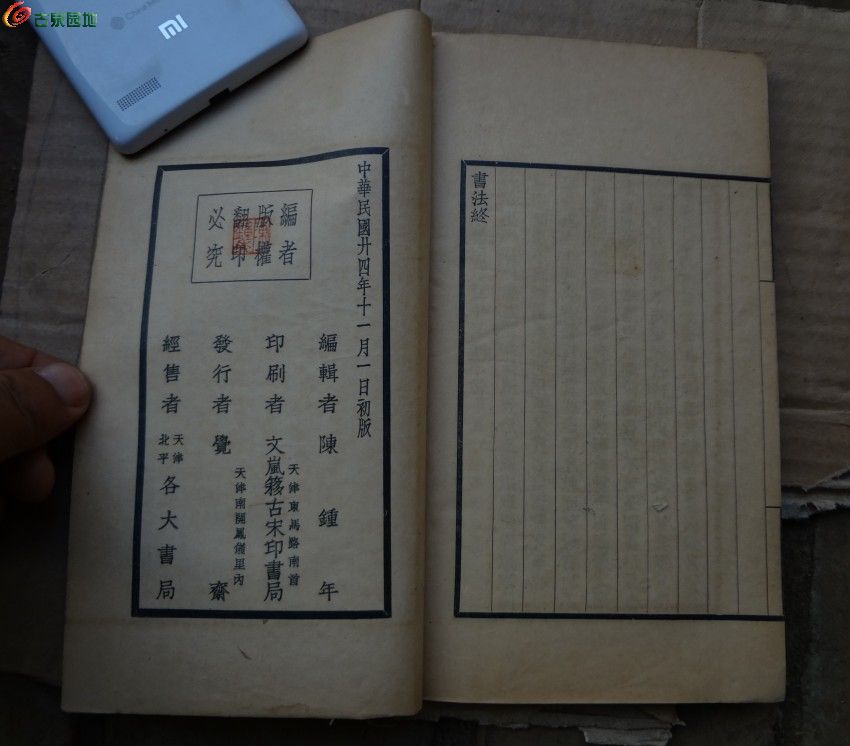 古泉园地
China Mobile
mi
書法終
中華民國廿四年十一月一日初版
編者
版權
翻印
必究
編輯者 陳鍾年
印刷者 文嵐簃古宋印書局
天津東馬路南首
發行者 覺齋
天津南開鳳儀里內
經售者 天津 北平 各大書局